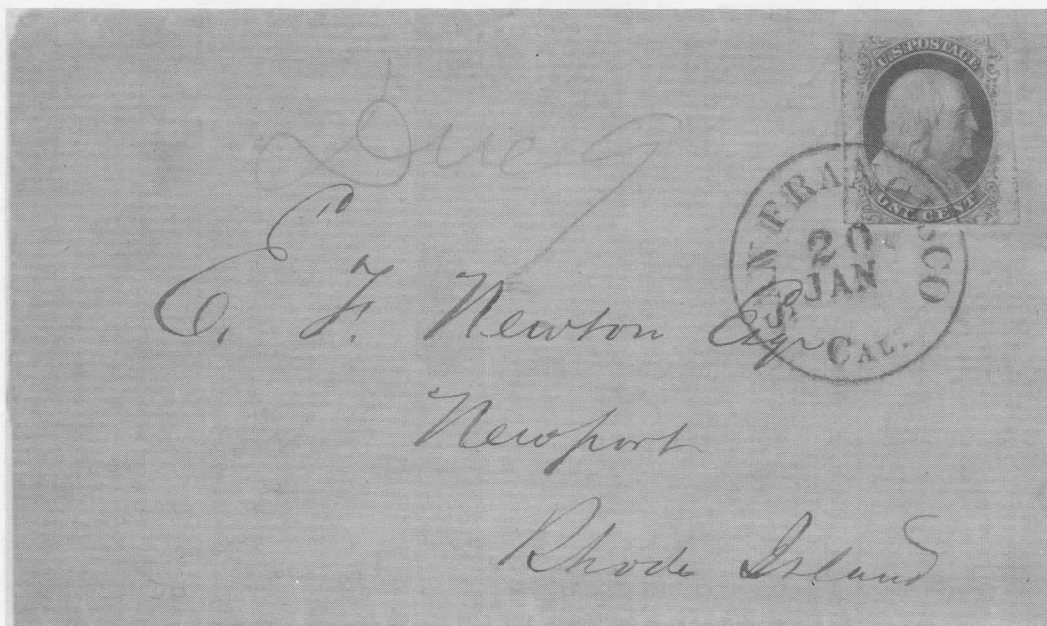 U.S. POSTAGE
ONE CENT
Due 9
SAN FRANCISCO
20
JAN
CAL.
E. F. Newton Esqr
Newport
Rhode Island